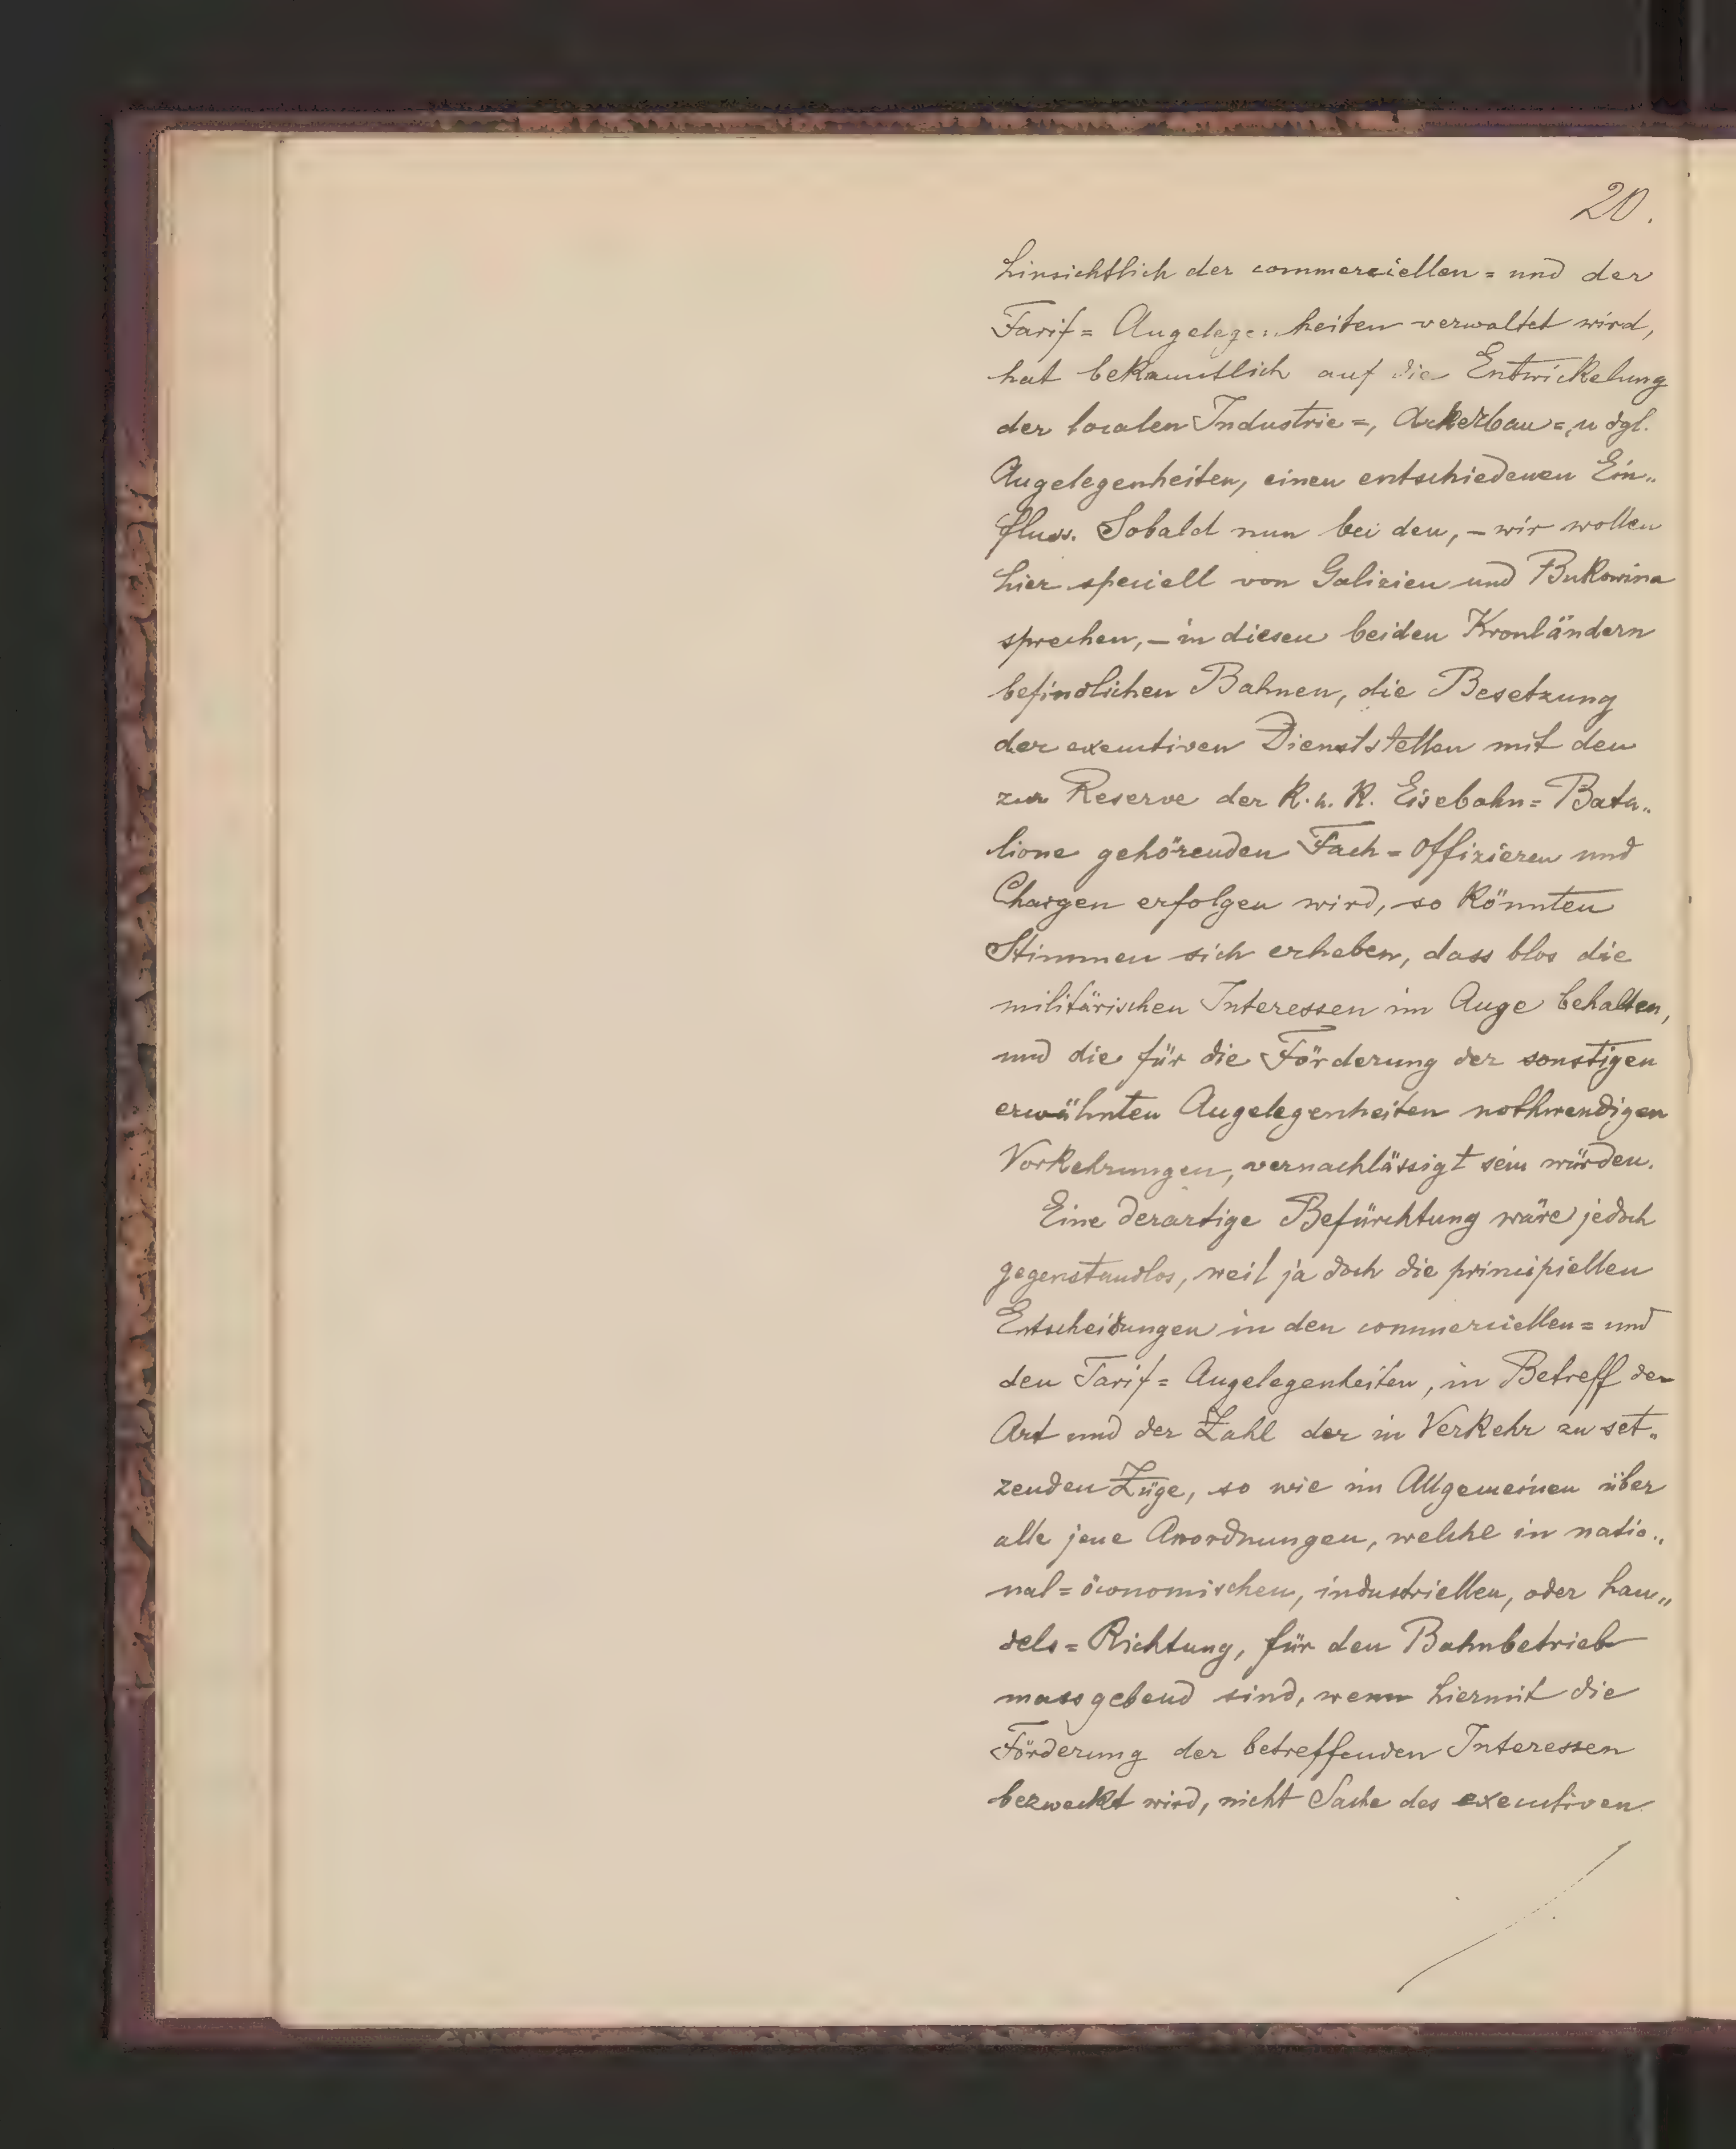 20.
hinsichtlich der commerciellen= und der
Tarif= Angelegenheiten verwaltet wird,
hat bekanntlich auf die Entwickelung
der localen Industrie=, Ackerbau=, u dgl.
Angelegenheiten, einen entschiedenen Ein„
fluss. Sobald nun bei den, – wir wollen
hier speciell von Galizien und Bukowina
sprechen, – in diesen beiden Kronländern
befindlichen Bahnen, die Besetzung
der executiven Dienststellen mit den
zur Reserve der k. u. k. Eisebahn= Bata„
lione gehörenden Fach= Offizieren und
Chargen erfolgen wird, so könnten
Stimmen sich erheben, dass blos die
militärischen Interessen im Auge behalten,
und die für die Förderung der sonstigen
erwähnten Angelegenheiten nothwendigen
Vorkehrungen, vernachlässigt sein würden.
Eine derartige Befürchtung wäre jedoch
gegenstandlos, weil ja doch die principiellen
Entscheidungen in den commerciellen= und
den Tarif= Angelegenheiten, in Betreff der
Art und der Zahl der in Verkehr zu set„
zenden Züge, so wie im Allgemeinen über
alle jene Anordnungen, welche in natio„
nal=öconomischen, industriellen, oder han„
dels= Richtung, für den Bahnbetrieb
massgebend sind, wenn hiermit die
Förderung der betreffenden Interessen
bezweckt wird, nicht Sache des executiven